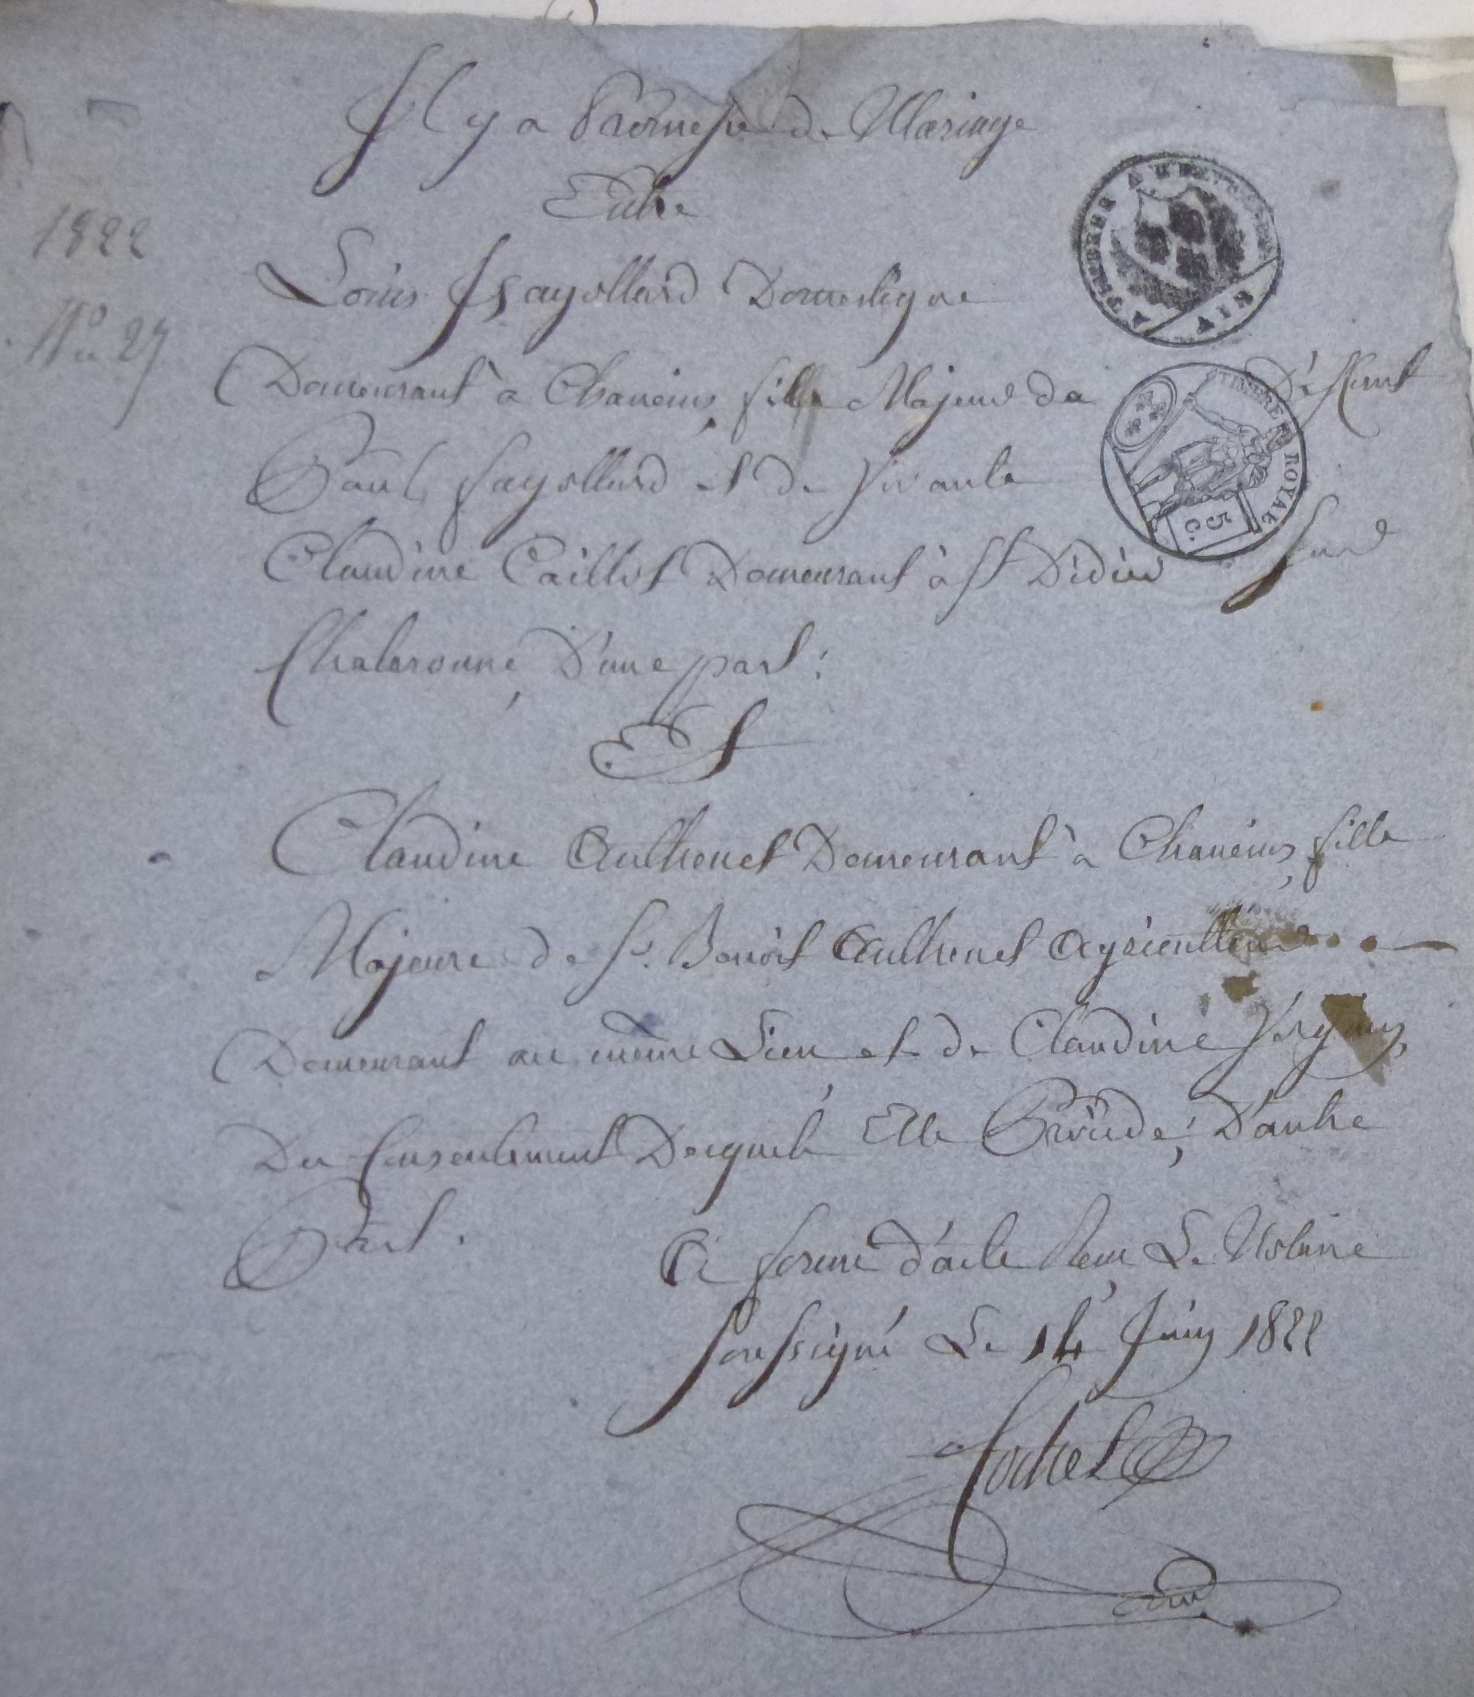 Il y a Promesse de Mariage
Entre
1822
Louis Fayollard Domestique
No 27
Demeurant à Chaneins, fils Majeur de Défunt
Paul fayollard et de vivante
Claudine Caillot Demeurant à St Didier sur
Chalaronne, D'une part;
Et
Claudine Authenet Demeurant à Chaneins, fille
Majeure de Sr. Benoit Authenet Agriculteur
Demeurant au même Lieu, et de Claudine
Du Consentement Desquels Elle Procède; D'autre
Part.
A forme d'acte Reçu, Le Notaire
soussigné Le 14 Juin 1822
TIMBRE ROYAL
5 c.
AIN